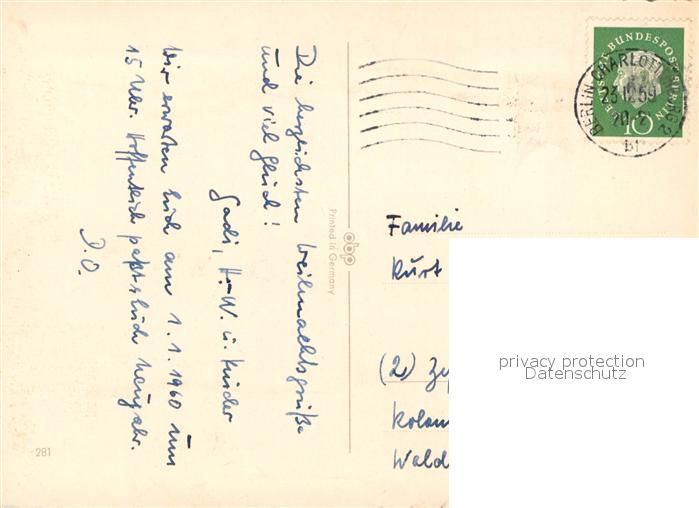 Die herzlichsten Weihnachtsgrüße
und viel Glück!
Gadi, H.-W. u. Kinder
Wir erwarten Euch am 1.1.1960 um
15 Uhr. Hoffentlich paßt's Euch Neujahr.
D.O.
281
Printed in Germany
DEUTSCHE BUNDESPOST BERLIN
10
BERLIN-CHARLOTTENBURG 2
23.12.59
bl
Familie
Kurt
(2)
Wald
privacy protection
Datenschutz